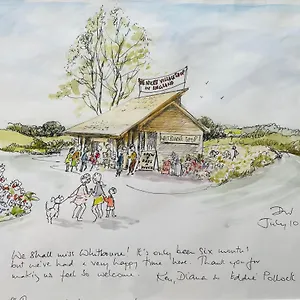 THE NICEST VILLAGE SHOP
IN ENGLAND
DW
July 10
We shall miss Whitbourne! It's only been six months
but we've had a very happy time here. Thank you for
making us feel so welcome. Ken, Diana & Eddie Pollock